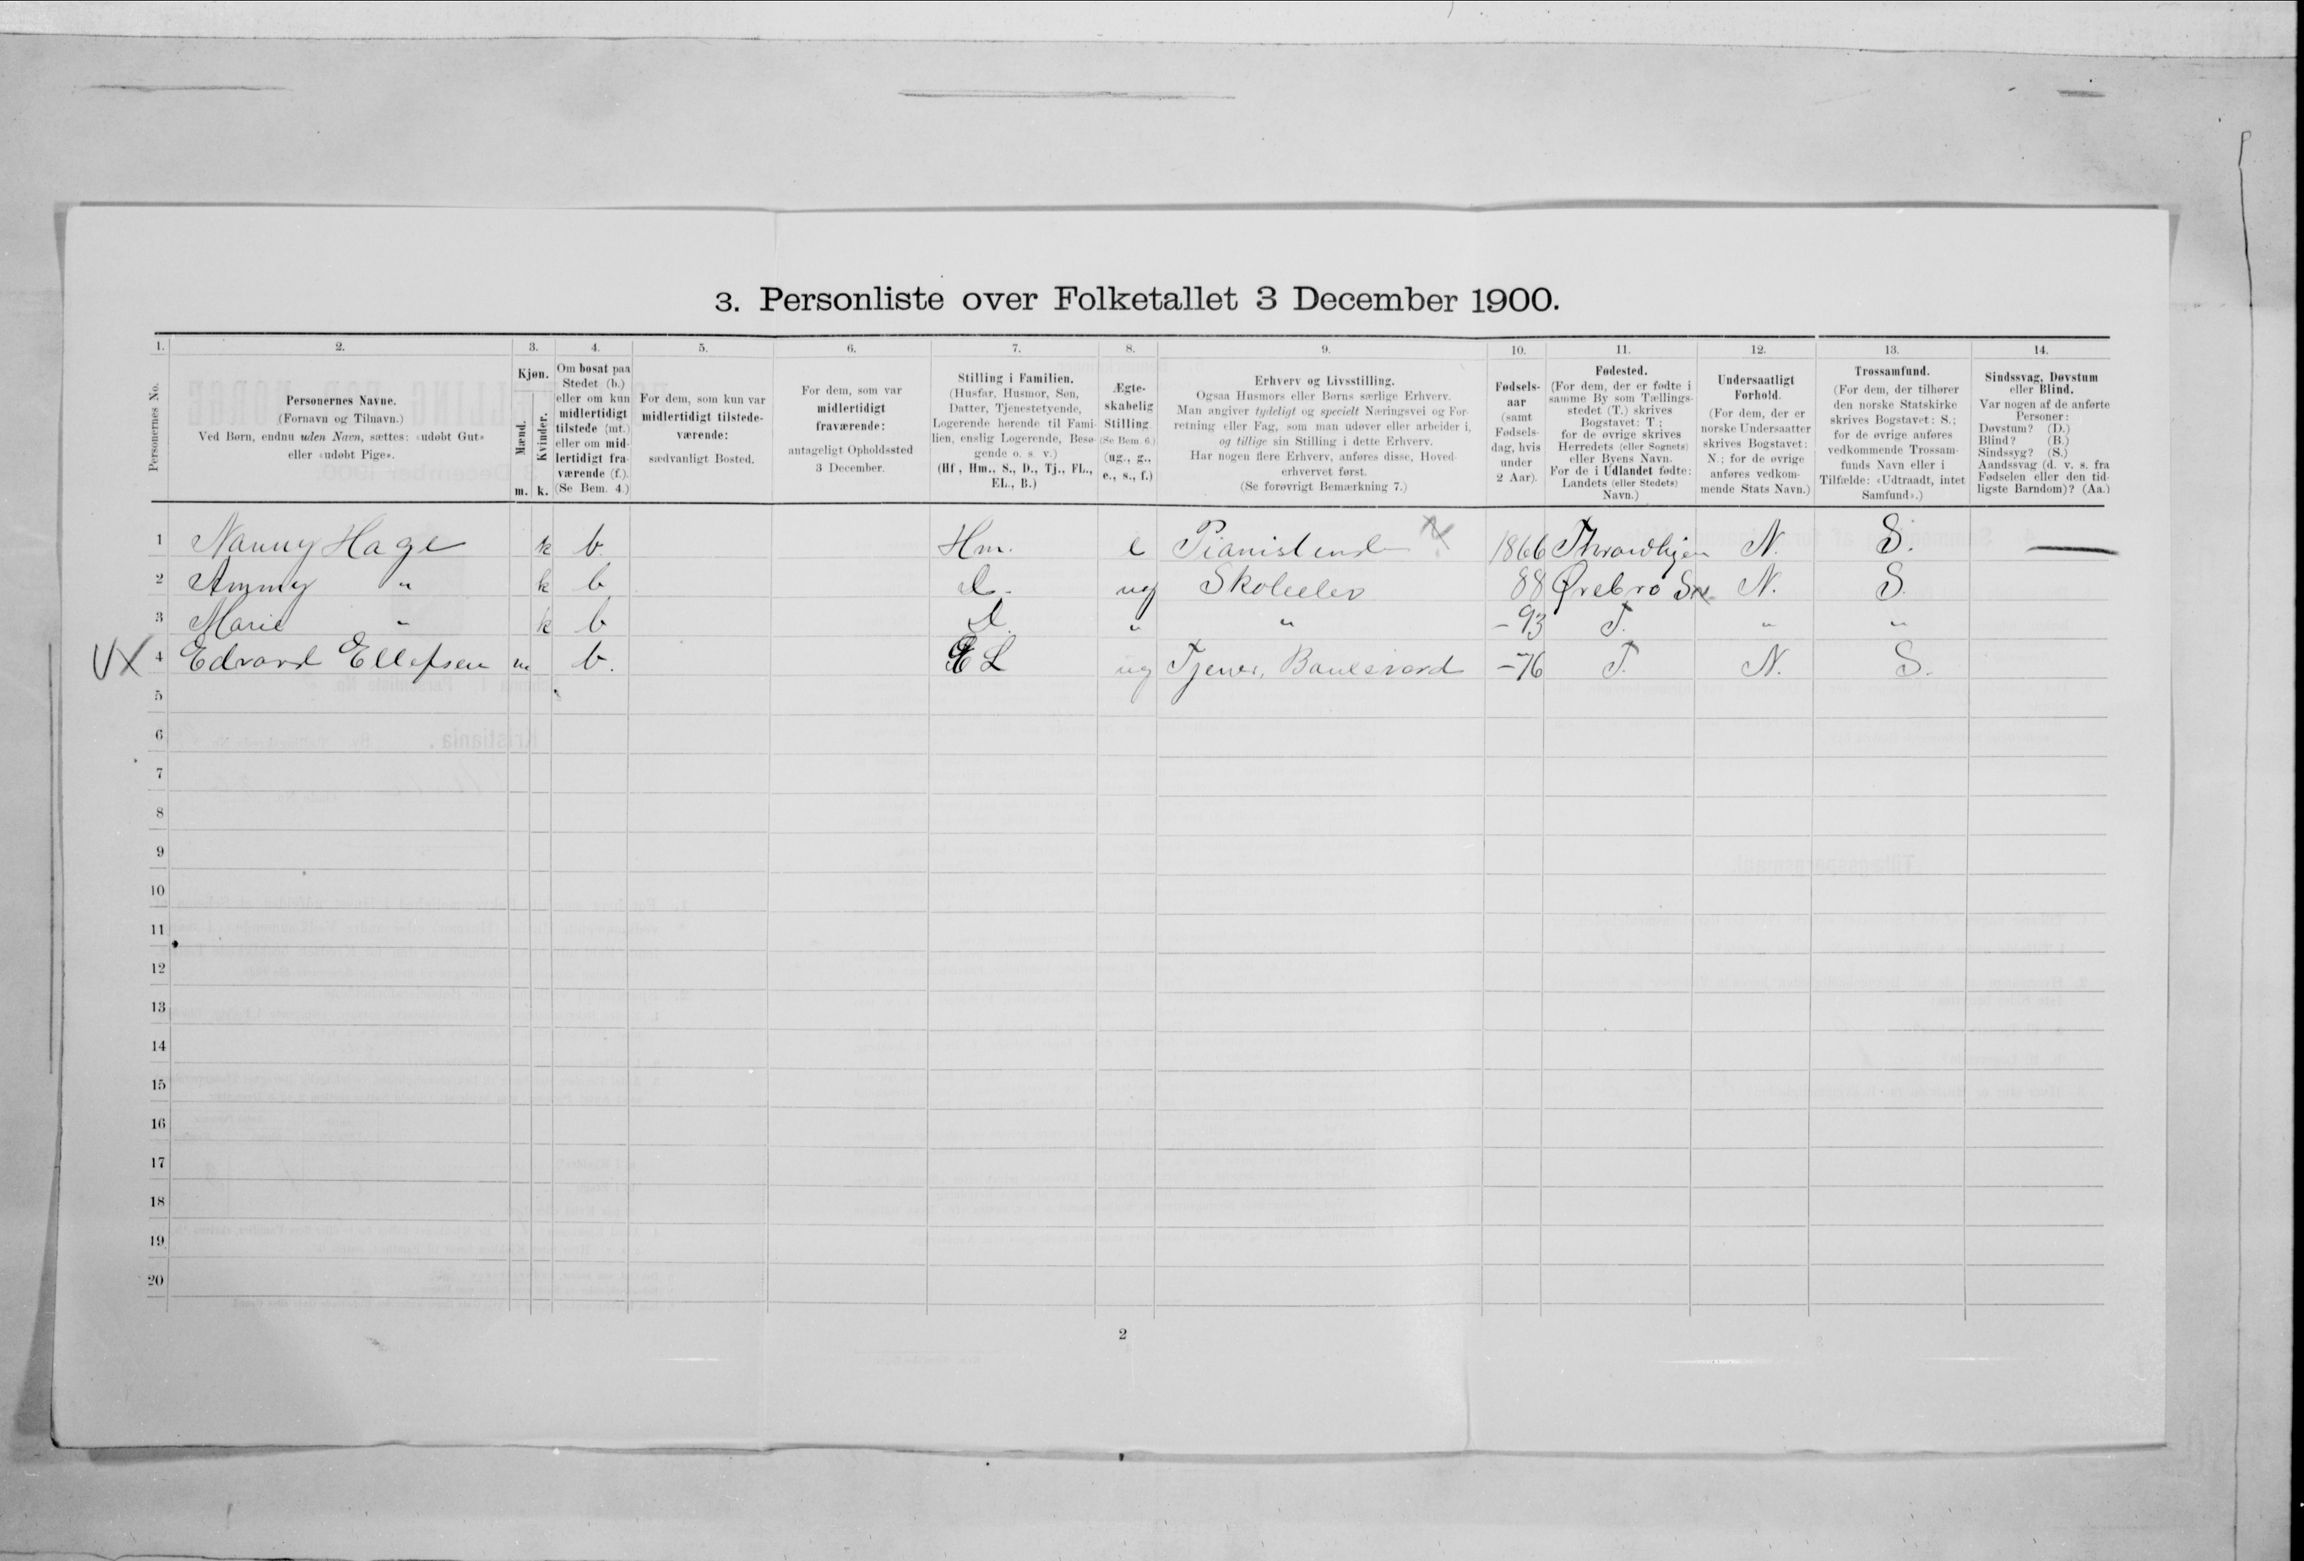 3. Personliste over Folketallet 3 December 1900.
1. 2. 3. 4. 5. 6. 7. 8. 9. 10. 11. 12. 13. 14.
Personernes No.
Personernes Navne.
(Fornavn og Tilnavn.)
Ved Børn, endnu uden Navn, sættes: «udøbt Gut»
eller «udøbt Pige».
Kjøn.
Mænd.
Kvinder.
m. k.
Om bosat paa
Stedet (b.)
eller om kun
midlertidigt
tilstede (mt.)
eller om mid-
lertidigt fra-
værende (f.).
(Se Bem. 4.)
For dem, som kun var
midlertidigt tilstede-
værende:
sædvanligt Bosted.
For dem, som var
midlertidigt
fraværende:
antageligt Opholdssted
3 December.
Stilling i Familien.
(Husfar, Husmor, Søn,
Datter, Tjenestetyende,
Logerende hørende til Fami-
lien, enslig Logerende, Besø-
gende o. s. v.)
(Hf, Hm., S., D., Tj., FL.,
EL., B.)
Ægte-
skabelig
Stilling
(Se Bem. 6.)
(ug., g.,
e., s., f.)
Erhverv og Livsstilling.
Ogsaa Husmors eller Børns særlige Erhverv.
Man angiver tydeligt og specielt Næringsvei og For-
retning eller Fag, som man udøver eller arbeider i,
og tillige sin Stilling i dette Erhverv.
Har nogen flere Erhverv, anføres disse, Hoved-
erhvervet først.
(Se forøvrigt Bemærkning 7.)
Fødsels-
aar
(samt
Fødsels-
dag, hvis
under
2 Aar).
Fødested.
(For dem, der er fødte i
samme By som Tællings-
stedet (T.) skrives
Bogstavet: T.;
for de øvrige skrives
Herredets (eller Sognets)
eller Byens Navn.
For de i Udlandet fødte:
Landets (eller Stedets)
Navn.)
Undersaatligt
Forhold.
(For dem, der er
norske Undersaatter
skrives Bogstavet:
N.; for de øvrige
anføres vedkom-
mende Stats Navn.)
Trossamfund.
(For dem, der tilhører
den norske Statskirke
skrives Bogstavet: S.;
for de øvrige anføres
vedkommende Trossam-
funds Navn eller i
Tilfælde: «Udtraadt, intet
Samfund».)
Sindssvag, Døvstum
eller Blind.
Var nogen af de anførte
Personer:
Døvstum? (D.)
Blind? (B.)
Sindssyg? (S.)
Aandssvag (d. v. s. fra
Fødselen eller den tid-
ligste Barndom)? (Aa.)
1 Nanny Hage k b Hm. e Pianistinde 1866 Throndhjem N. S. —
2 Ammy " k b D. ug Skoleelev 88 Ørebro Sv. N. S.
3 Marie " k b D. " " -93 T. " "
4 Edvard Ellefsen m b. EL ug Tjener, Boulevard -76 T. N. S.
5
6
7
8
9
10
11
12
13
14
15
16
17
18
19
20
2